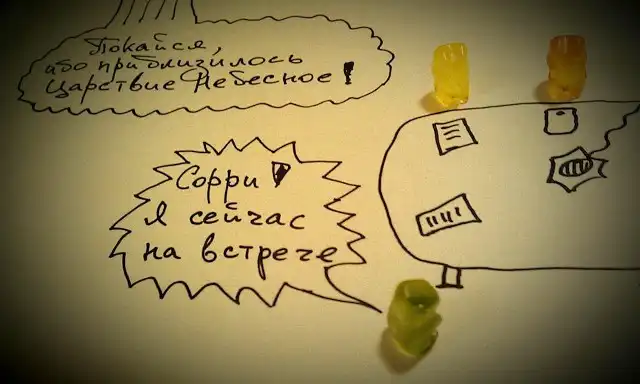 Покайся,
ибо приблизилось
Царствие Небесное!
Сорри!
Я сейчас
на встрече